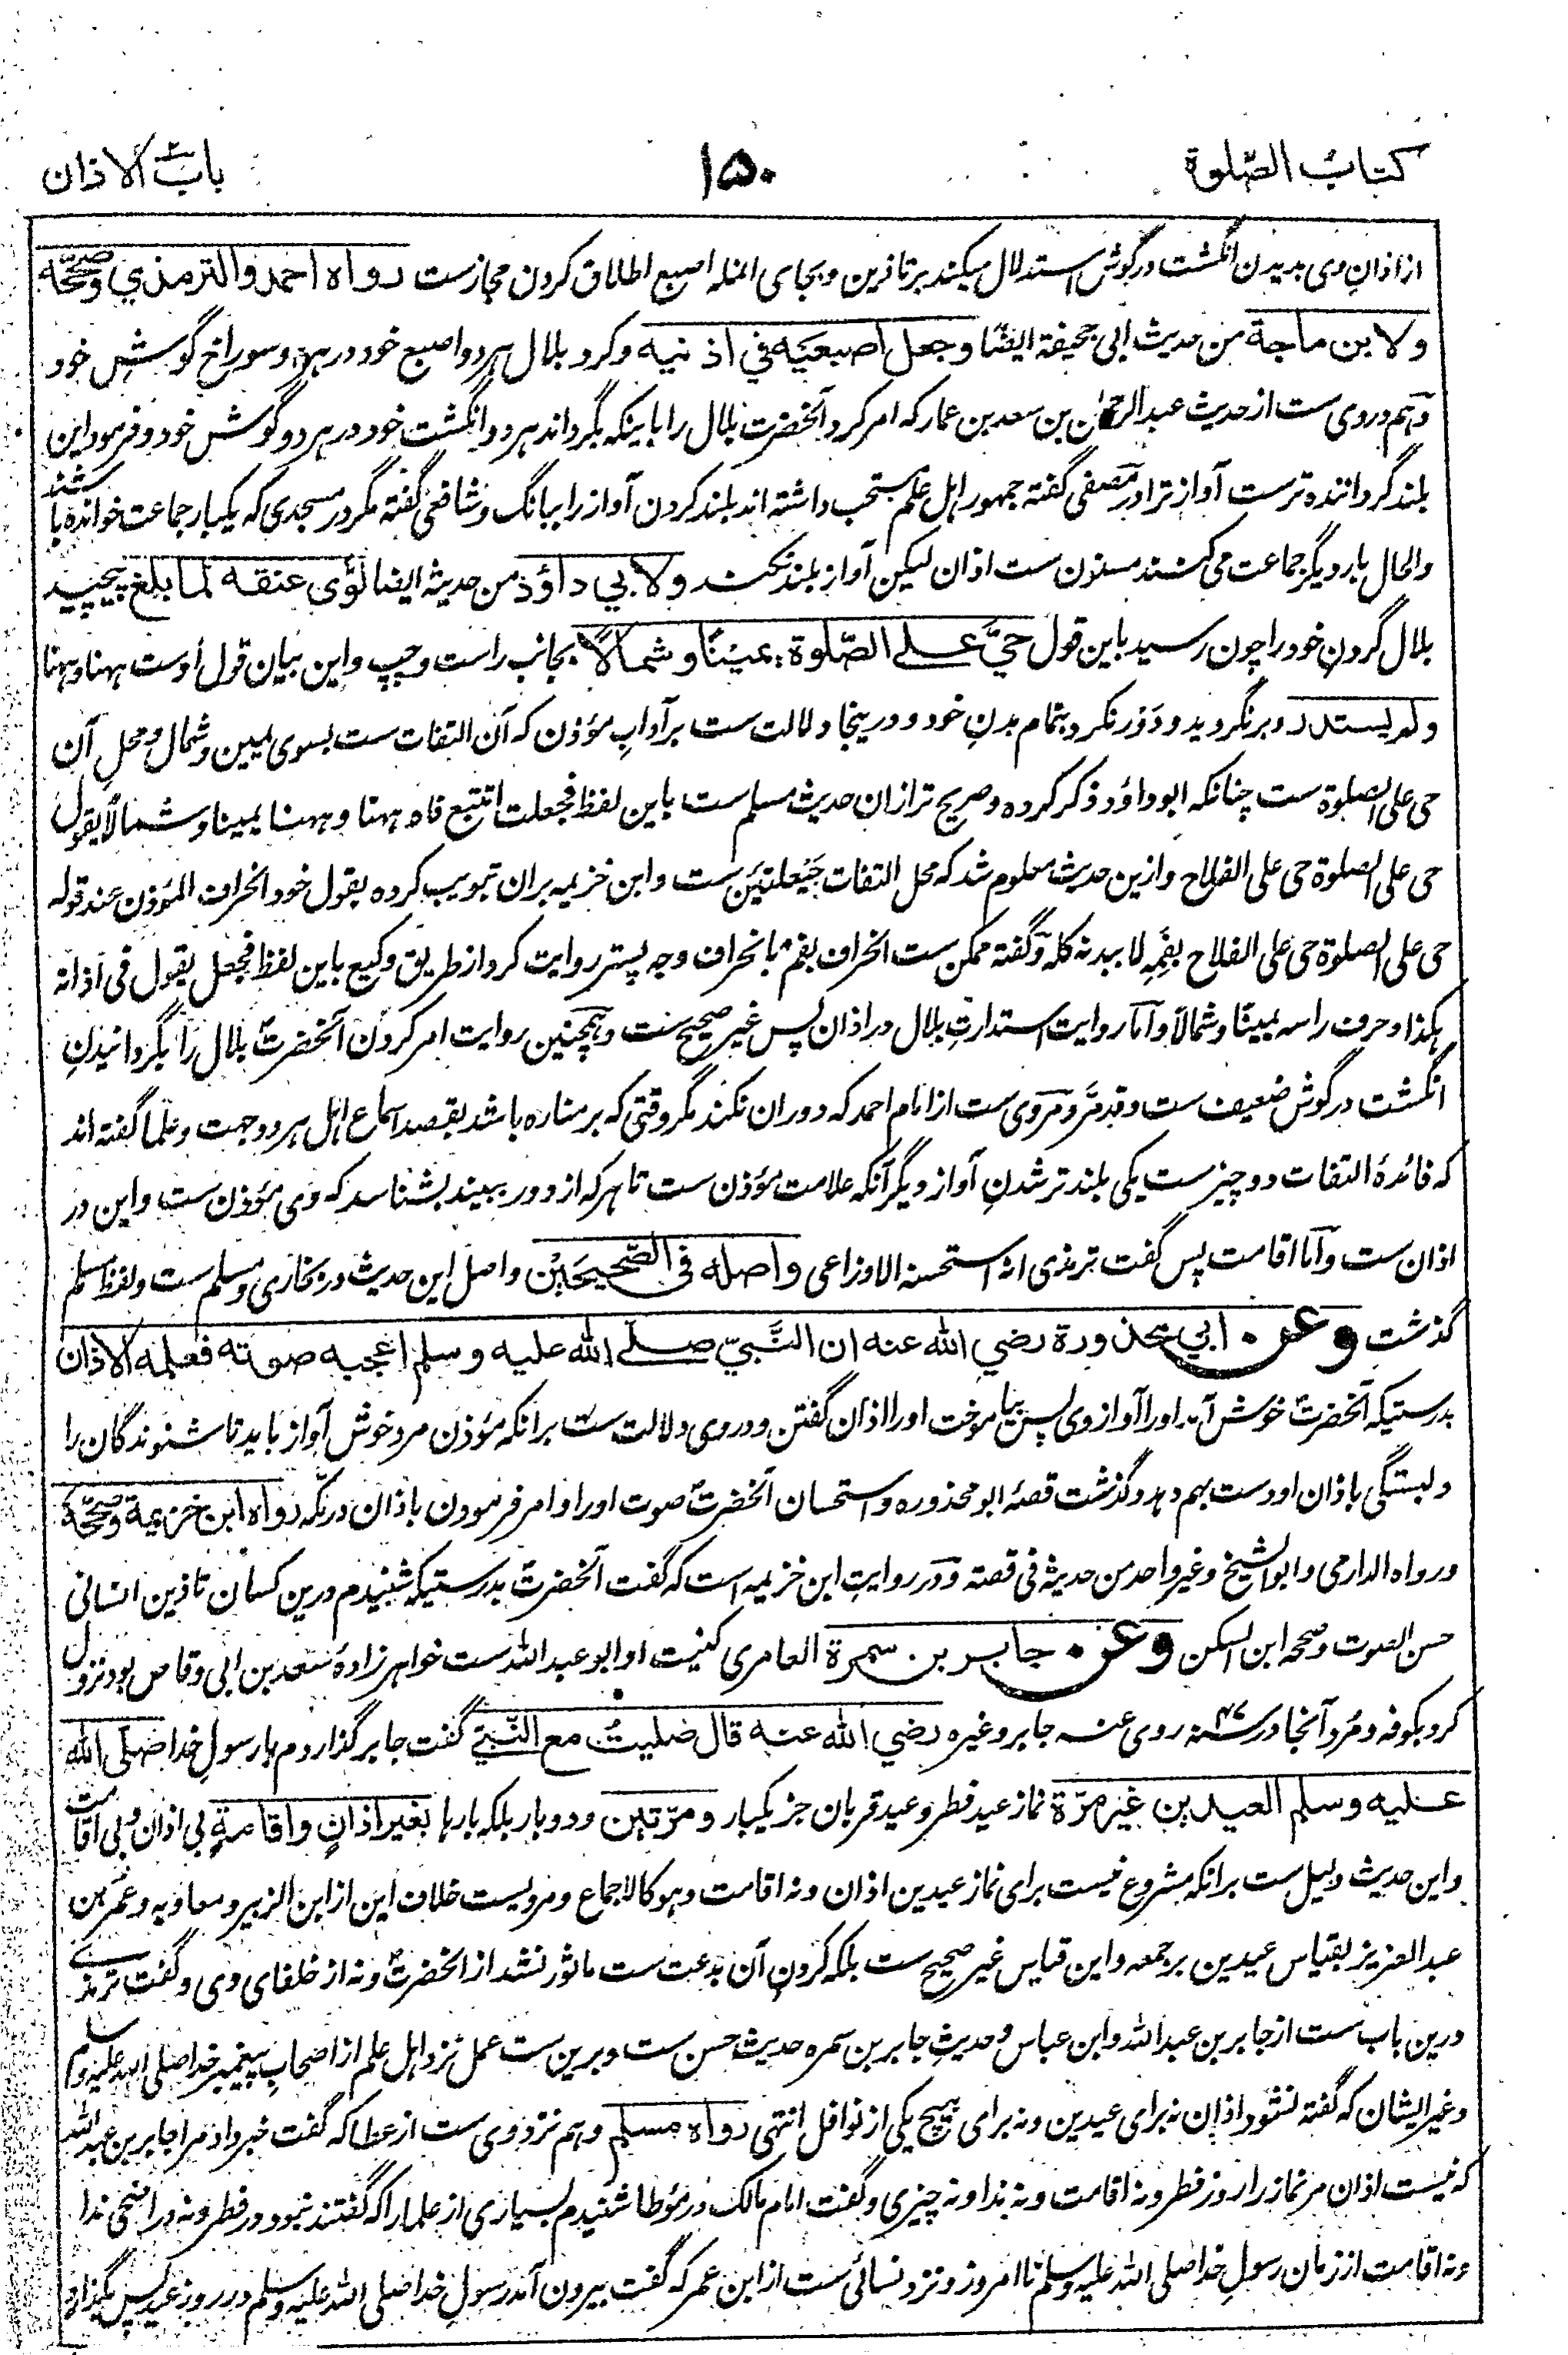 کتاب الصّلوة
۱۵۰
باب الاذان
از اذانِ وی بدیدن انگشت در گوش استدلال میکند بر تاذین و بجای انمله اصبع اطلاق کردن مجازست رواه احمد والترمذي وصحّحه
ولابن ماجة من حدیث ابی جحیفة ایضًا وجعل اصبعیه في اذنیه وکرد بلال هر دو اصبع خود در هر دو سوراخ گوشِ خود
وهم در وی ست از حدیث عبد الرحمٰن بن سعد بن عمار که امر کرد آنحضرت بلال را باینکه بگرداند هر دو انگشت خود در هر دو گوش خود و فرمود این
بلند گرداننده ترست آواز ترا در مصفی گفته جمهور اهل علم مستحب داشته اند بلند کردن آواز را ببانگ و شافعی گفته مگر در مسجدی که یکبار جماعت خوانده باشند
والحال بار دیگر جماعت می کنند مسنون ست اذان لیکن آواز بلند نکنند ولابي داؤد من حدیثه ایضا لوٰی عنقه لما بلغ پیچید
بلال گردنِ خود را چون رسید باین قول حيّ علی الصّلوة یمینًا و شمالًا بجانب راست و چپ و این بیان قول اوست ههنا وههنا
ولم یستدر و برنگردید و دَور نکرد بتمام بدنِ خود و درینجا دلالت ست بر آدابِ مؤذن که آن التفات ست بسوی یمین و شمال و محلِ آن
حی علی الصلوة ست چنانکه ابو داؤد ذکر کرده و صریح تر ازان حدیث مسلم ست باین لفظ فجعلت اتتبع فاه ههنا وههنا یمینا و شمالًا یقول
حی علی الصلوة حی علی الفلاح و ازین حدیث معلوم شد که محل التفات حَیْعلتَیْن ست و ابن خزیمه بران تبویب کرده بقول خود انحراف المؤذن عند قوله
حی علی الصلوة حی علی الفلاح بفمِه لا ببدنه کله و گفته ممکن ست انحراف بفم بانحراف وجه پستر روایت کرد از طریق وکیع باین لفظ فجعل یقول فی اذانه
هکذا و حرف راسه یمینًا و شمالًا و اما روایت استدارتِ بلال در اذان پس غیر صحیح ست و همچنین روایت امر کردن آنحضرت بلال را بگردانیدنِ
انگشت در گوش ضعیف ست و قد مرّ و مروی ست از امام احمد که دوران نکند مگر وقتی که بر مناره باشد بقصد اسماع اهل هر دو جهت و علما گفته اند
که فائدهٔ التفات دو چیزست یکی بلند تر شدنِ آواز دیگر آنکه علامت مؤذن ست تا هر که از دور ببیند بشناسد که وی مؤذن ست و این در
اذان ست و اما اقامت پس گفت ترمذی انه استحسنه الاوزاعی واصله فی الصّحیحَیْن و اصل این حدیث در بخاری و مسلم ست و لفظ مسلم
گذشت وعن ابي محذورة رضي الله عنه ان النّبيّ صلی الله علیه وسلم اعجبه صوته فعلمه الاذان
بدرستیکه آنحضرت خوش آمد او را آواز وی پس بیاموخت او را اذان گفتن و در وی دلالت ست برانکه مؤذن مرد خوش آواز باید تا شنوندگان را
دلبستگی باذان او دست بهم دهد و گذشت قصهٔ ابو محذوره و استحسان آنحضرت صوت او را و امر فرمودن باذان در مکه رواه ابن خزیمة وصحّحه
و رواه الدارمی و ابو الشیخ و غیر واحد من حدیثه فی قصته و در روایتِ ابن خزیمه است که گفت آنحضرت بدرستیکه شنیدم درین کسان تاذین انسانی
حسن الصوت و صححه ابن السکن وعن جابر بن سمرة العامری کنیت او ابو عبد الله ست خواهر زادهٔ سعد بن ابی وقاص بود نزول
کرد بکوفه و مُرد آنجا در سنه ۷۴ روی عنه جابر و غیره رضي الله عنه قال صلیتُ مع النّبيّ گفت جابر گذاردم با رسولِ خدا صلی الله
علیه وسلم العیدین غیر مرّة نماز عید فطر و عید قربان جز یکبار ومرّتین و دو بار بلکه بارها بغیر اذانٍ واقامةٍ بی اذان و بی اقامت
و این حدیث دلیل ست برانکه مشروع نیست برای نماز عیدین اذان و نه اقامت و هو کالاجماع و مرویست خلاف این از ابن الزبیر و معاویه و عمر بن
عبد العزیز بقیاس عیدین بر جمعه و این قیاس غیر صحیح ست بلکه کردنِ آن بدعت ست ماثور نشد از آنحضرت و نه از خلفای وی و گفت ترمذی
درین باب ست از جابر بن عبد الله و ابن عباس و حدیثِ جابر بن سمره حدیث حسن ست و برین ست عمل نزد اهل علم از اصحابِ پیغمبر خدا صلی الله علیه وسلم
و غیر ایشان که گفته نشود اذان نه برای عیدین و نه برای هیچ یکی از نوافل انتهی رواه مسلم و هم نزد وی ست از عطا که گفت خبر داد مرا جابر بن عبد الله
که نیست اذان مر نماز را روز فطر و نه اقامت و نه ندا و نه چیزی و گفت امام مالک در مؤطا شنیدم بسیاری از علما را که گفتند نبود در فطر و نه در اضحی ندا
و نه اقامت از زمان رسولِ خدا صلی الله علیه وسلم تا امروز و نزد نسائی ست از ابن عمر که گفت بیرون آمد رسولِ خدا صلی الله علیه وسلم در روز عید پس بگذارد